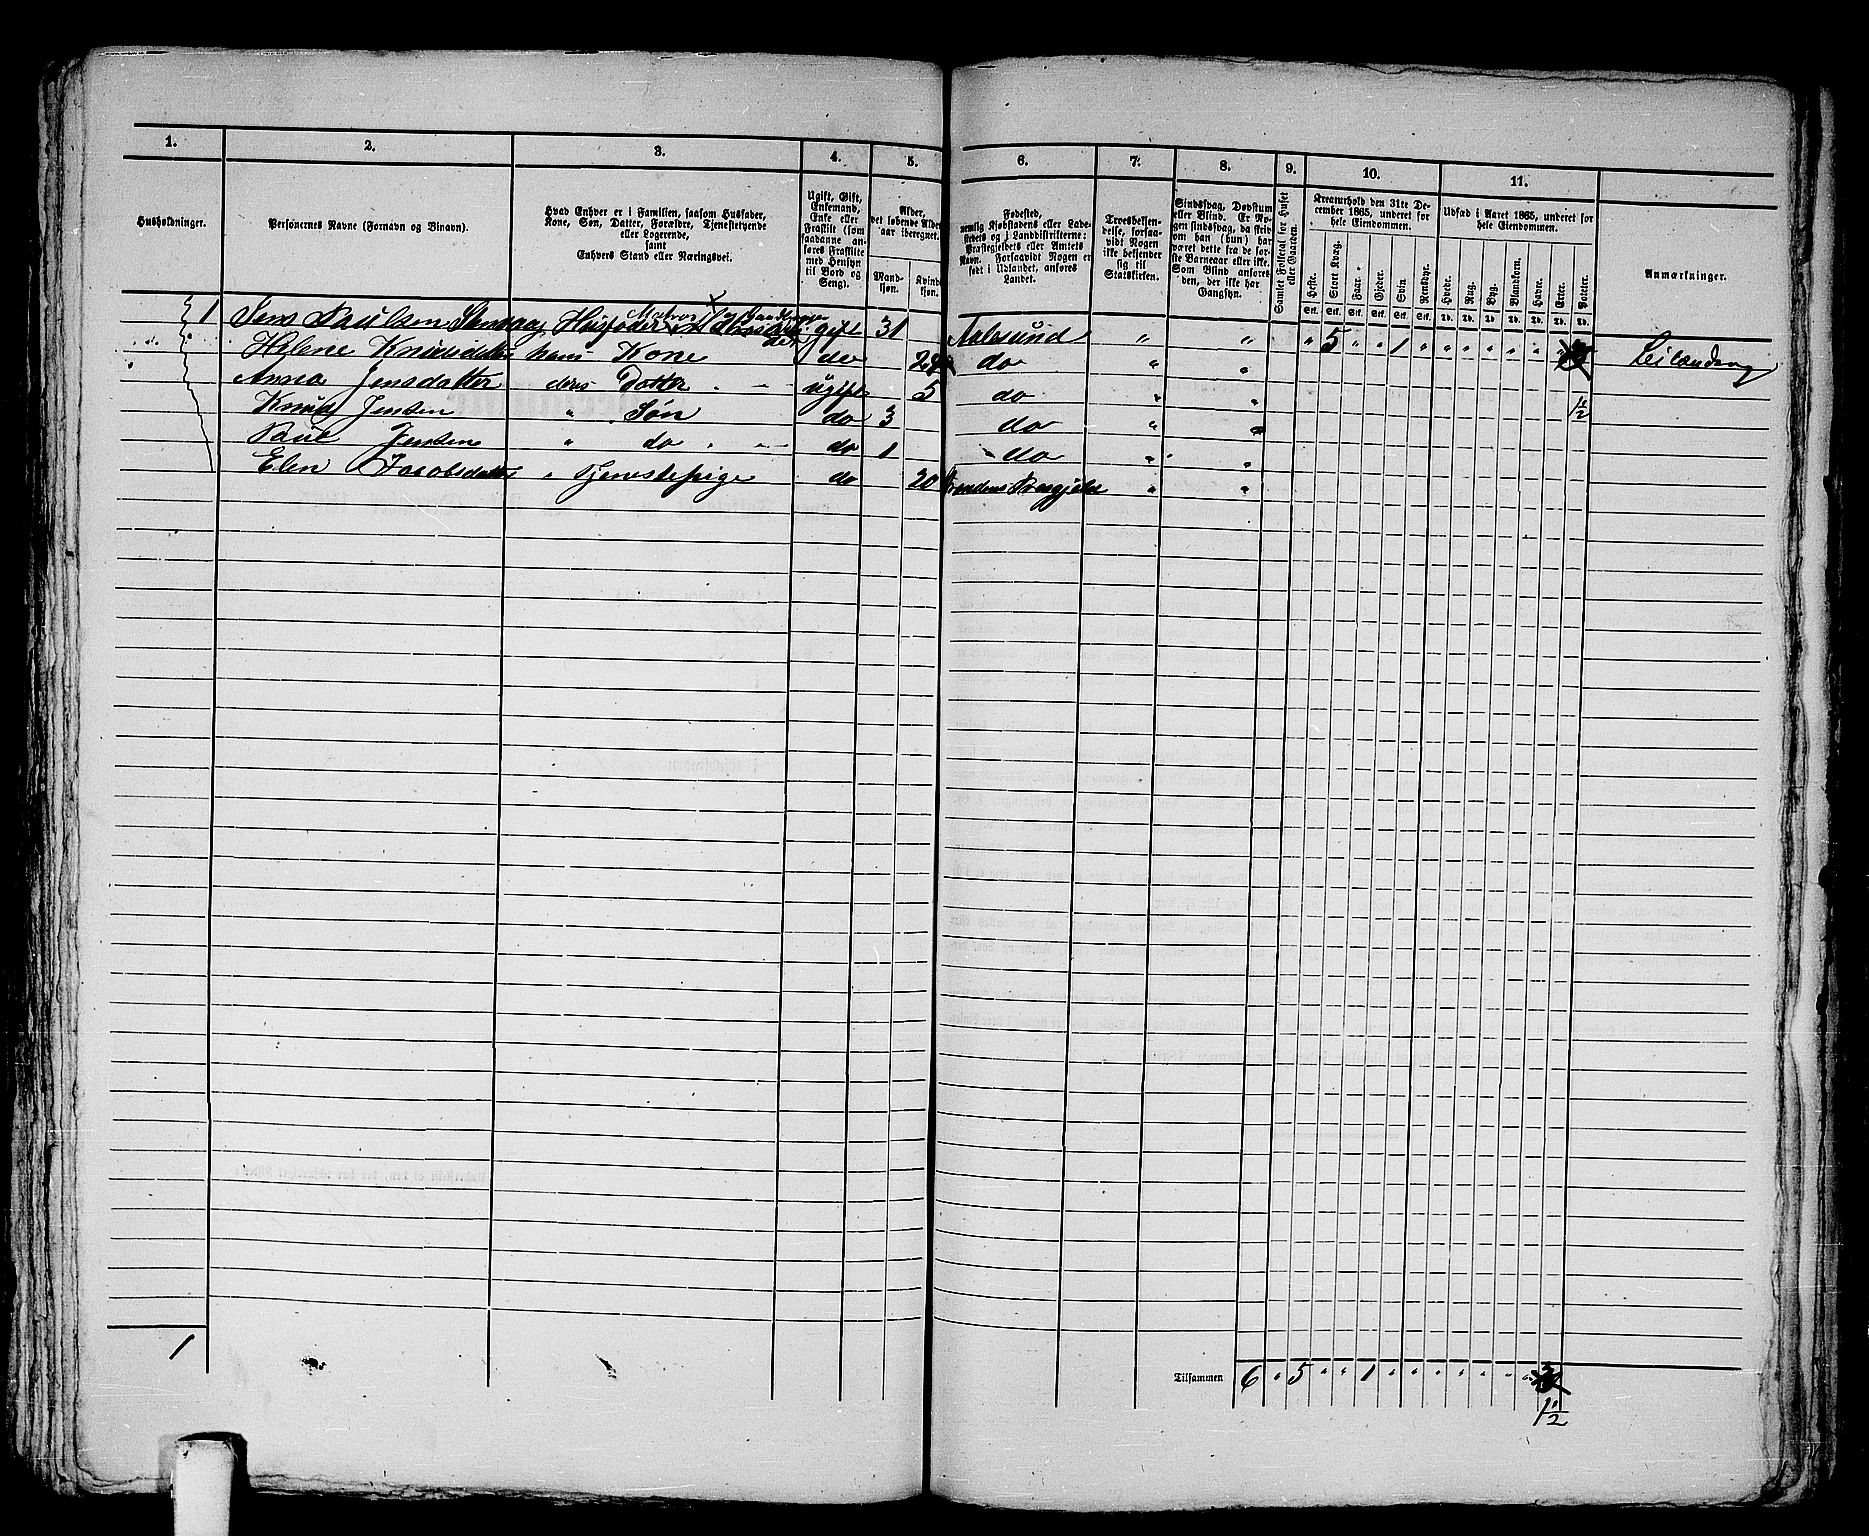 1. 2. 3. 4. 5. 6. 7. 8. 9. 10. 11.
Husholdninger.
Personernes Navne (Fornavn og Binavn).
Hvad Enhver er i Familien, saasom Husfader,
Kone, Søn, Datter, Forældre, Tjenestetyende
eller Logerende,
samt
Enhvers Stand eller Næringsvei.
Ugift, Gift,
Enkemand,
Enke eller
Fraskilt (som
saadanne an-
føres Fraskilte
med Hensyn
til Bord og
Seng).
Alder,
det løbende Alders-
aar iberegnet.
Mand-
kjøn.
Kvinde-
kjøn.
Fødested,
nemlig Kjøbstadens eller Lade-
stedets og i Landdistrikterne:
Præstegjeldets eller Amtets
Navn. Forsaavidt Nogen er
født i Udlandet, anføres
Landet.
Troesbekjen-
delse, forsaa-
vidt Nogen
ikke bekjender
sig til
Statskirken.
Sindssvag, Døvstum
eller Blind. Er No-
gen sindssvag, da skriv
om han (hun) har
været dette fra de før-
ste Barneaar eller ikke.
Som Blind anføres
den, der ikke har
Gangsyn.
Samlet Folketal for Huset
eller Gaarden.
Kreaturhold den 31te De-
cember 1865, underet for
hele Eiendommen.
Heste. Stort Kvæg. Faar. Gjeder. Svin Rensdyr.
Stk. Stk. Stk. Stk. Stk. Stk.
Udsæd i Aaret 1865, underet for
hele Eiendommen.
Hvede. Rug. Byg. Blandkorn. Havre. Erter. Poteter.
Td. Td. Td. Td. Td. Td. Td.
Anmærkninger.
1 Jens Paulsen Husfader gift 31 Aalesund " " " 5 " " 1 " " " " " " "
Helene Knudsdatter hans Kone do do " "
Anna Jensdatter deres Datter ugift 5 do " "
Knud Jensen " Søn do 3 do " " 1½
Paul Jensen " do do 1 do " "
Elen Jacobsdatter " Tjenestepige do 20 " "
1
Tilsammen 6 " 5 " " 1 " " " " " "
1½